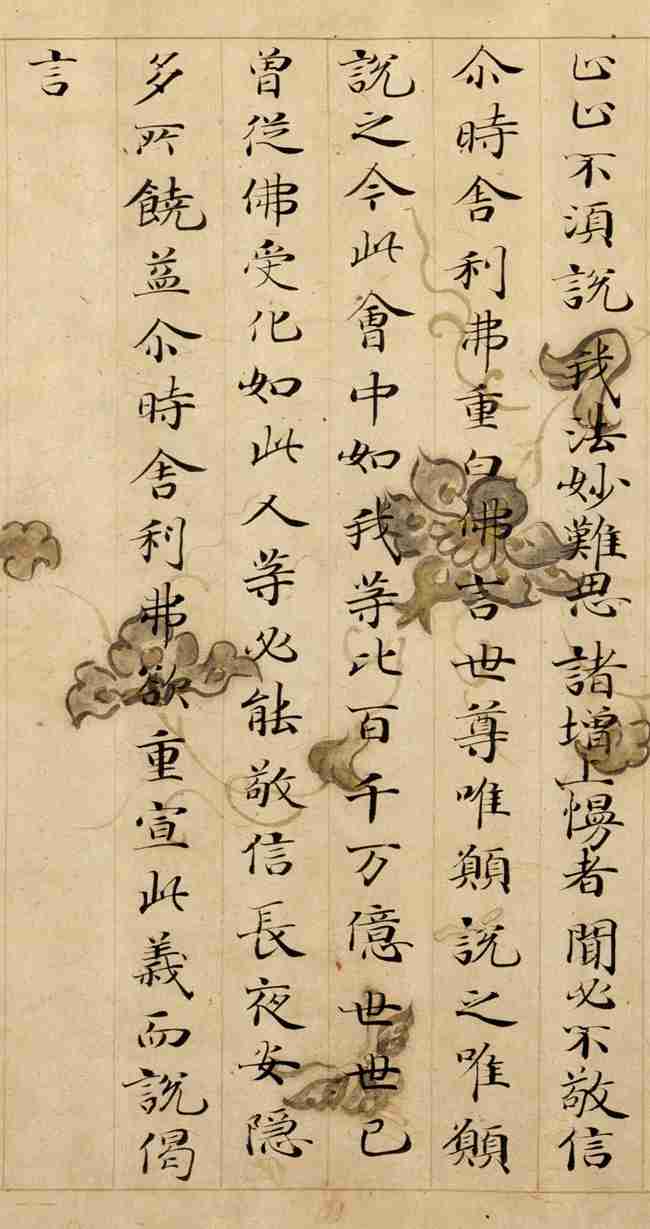 止止不須說 我法妙難思 諸増上慢者 聞必不敬信
尒時舎利弗重白佛言世尊唯願說之唯願
說之今此會中如我等比百千万億世世已
曽從佛受化如此人等必能敬信長夜安隠
多所饒益尒時舎利弗欲重宣此義而說偈
言